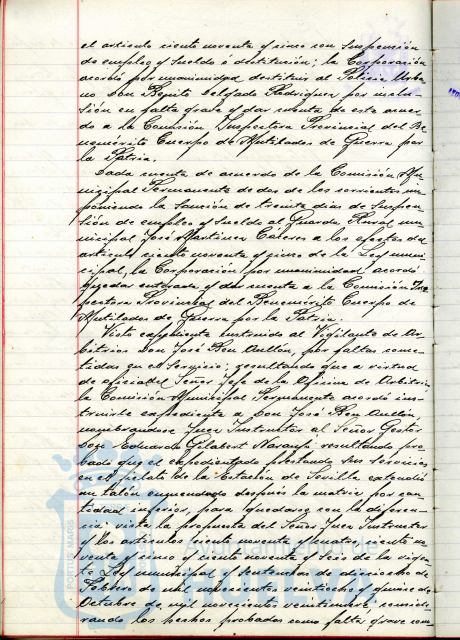 el artículo ciento noventa y cinco con suspensión
de empleo y sueldo ó destitución; la Corporación
acordó por unanimidad destituir al Policía Urba-
no Don Benito Delgado Rodríguez por reinci-
sión en falta grave y dar cuenta de este acuer-
do a la Comisión Inspectora Provincial del Be-
nemérito Cuerpo de Mutilados de Guerra por
la Patria.
Dada cuenta de acuerdo de la Comisión Mu-
nicipal Permanente de dos de los corrientes im-
poniendo la sanción de treinta días de suspen-
sión de empleo y sueldo al Guarda Rural mu-
nicipal José Martínez Cáceres a los efectos del
artículo ciento noventa y cinco de la Ley muni-
cipal, la Corporación por unanimidad acordó
quedar enterada y dar cuenta a la Comisión Ins-
pectora Provincial del Benemérito Cuerpo de
Mutilados de Guerra por la Patria.
Visto expediente instruido al Vigilante de Ar-
bitrios Don José Ron Aullón, por faltas come-
tidas en el servicio; resultando que a virtud
de oficio del Señor Jefe de la Oficina de Arbitrios
la Comisión Municipal Permanente acordó ins-
truirle expediente a Don José Ron Aullón,
nombrandose Juez Instructor al Señor Gestor
Don Eduardo Gilabert Naranjo resultando pro-
bado que el expedientado prestando sus servicios
en el fielato de la Estación de Sevilla extendió
un talón enmendado después la matriz por can-
tidad inferior, para quedarse con la diferen-
cia: vista la propuesta del Señor Juez Instructor
y los artículos ciento noventa y cuatro ciento no-
venta y cinco y ciento noventa y seis de la vigen-
te Ley municipal y sentencias de dieciocho de
Febrero de mil novecientos veintiocho y quince de
Octubre de mil novecientos veintinueve, conside-
rando los hechos probados como falta grave com-
Ayuntamiento de
HUELVA